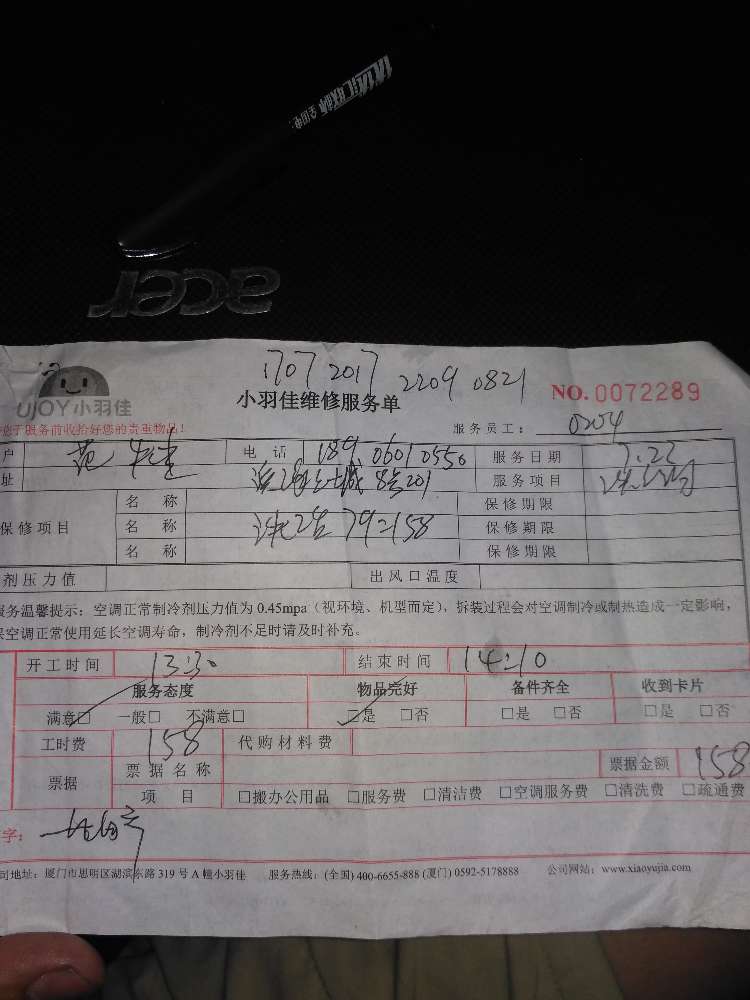 acer
1707 2017 2209 0821
UJOY小羽佳
小羽佳维修服务单
NO. 0072289
于服务前收拾好您的贵重物品!
服务员工: 0204
户 范 电 话 189 0601 0550 服务日期 7.22
址 8号201 服务项目
保修项目 名 称 保修期限
名 称 79=158 保修期限
名 称 保修期限
剂压力值 出风口温度
服务温馨提示: 空调正常制冷剂压力值为 0.45mpa (视环境、机型而定), 拆装过程会对空调制冷或制热造成一定影响,
空调正常使用延长空调寿命, 制冷剂不足时请及时补充。
开工时间 13:30 结束时间 14:10
服务态度 物品完好 备件齐全 收到卡片
满意□ 一般□ 不满意□ □是 □否 □是 □否 □是 □否
工时费 158 代购材料费
票据 票据名称 票据金额 158
项 目 □搬办公用品 □服务费 □清洁费 □空调服务费 □清洗费 □疏通费
字:
司地址: 厦门市思明区湖滨东路 319 号 A 幢小羽佳 服务热线: (全国) 400-6655-888 (厦门) 0592-5178888 公司网站: www.xiaoyujia.com